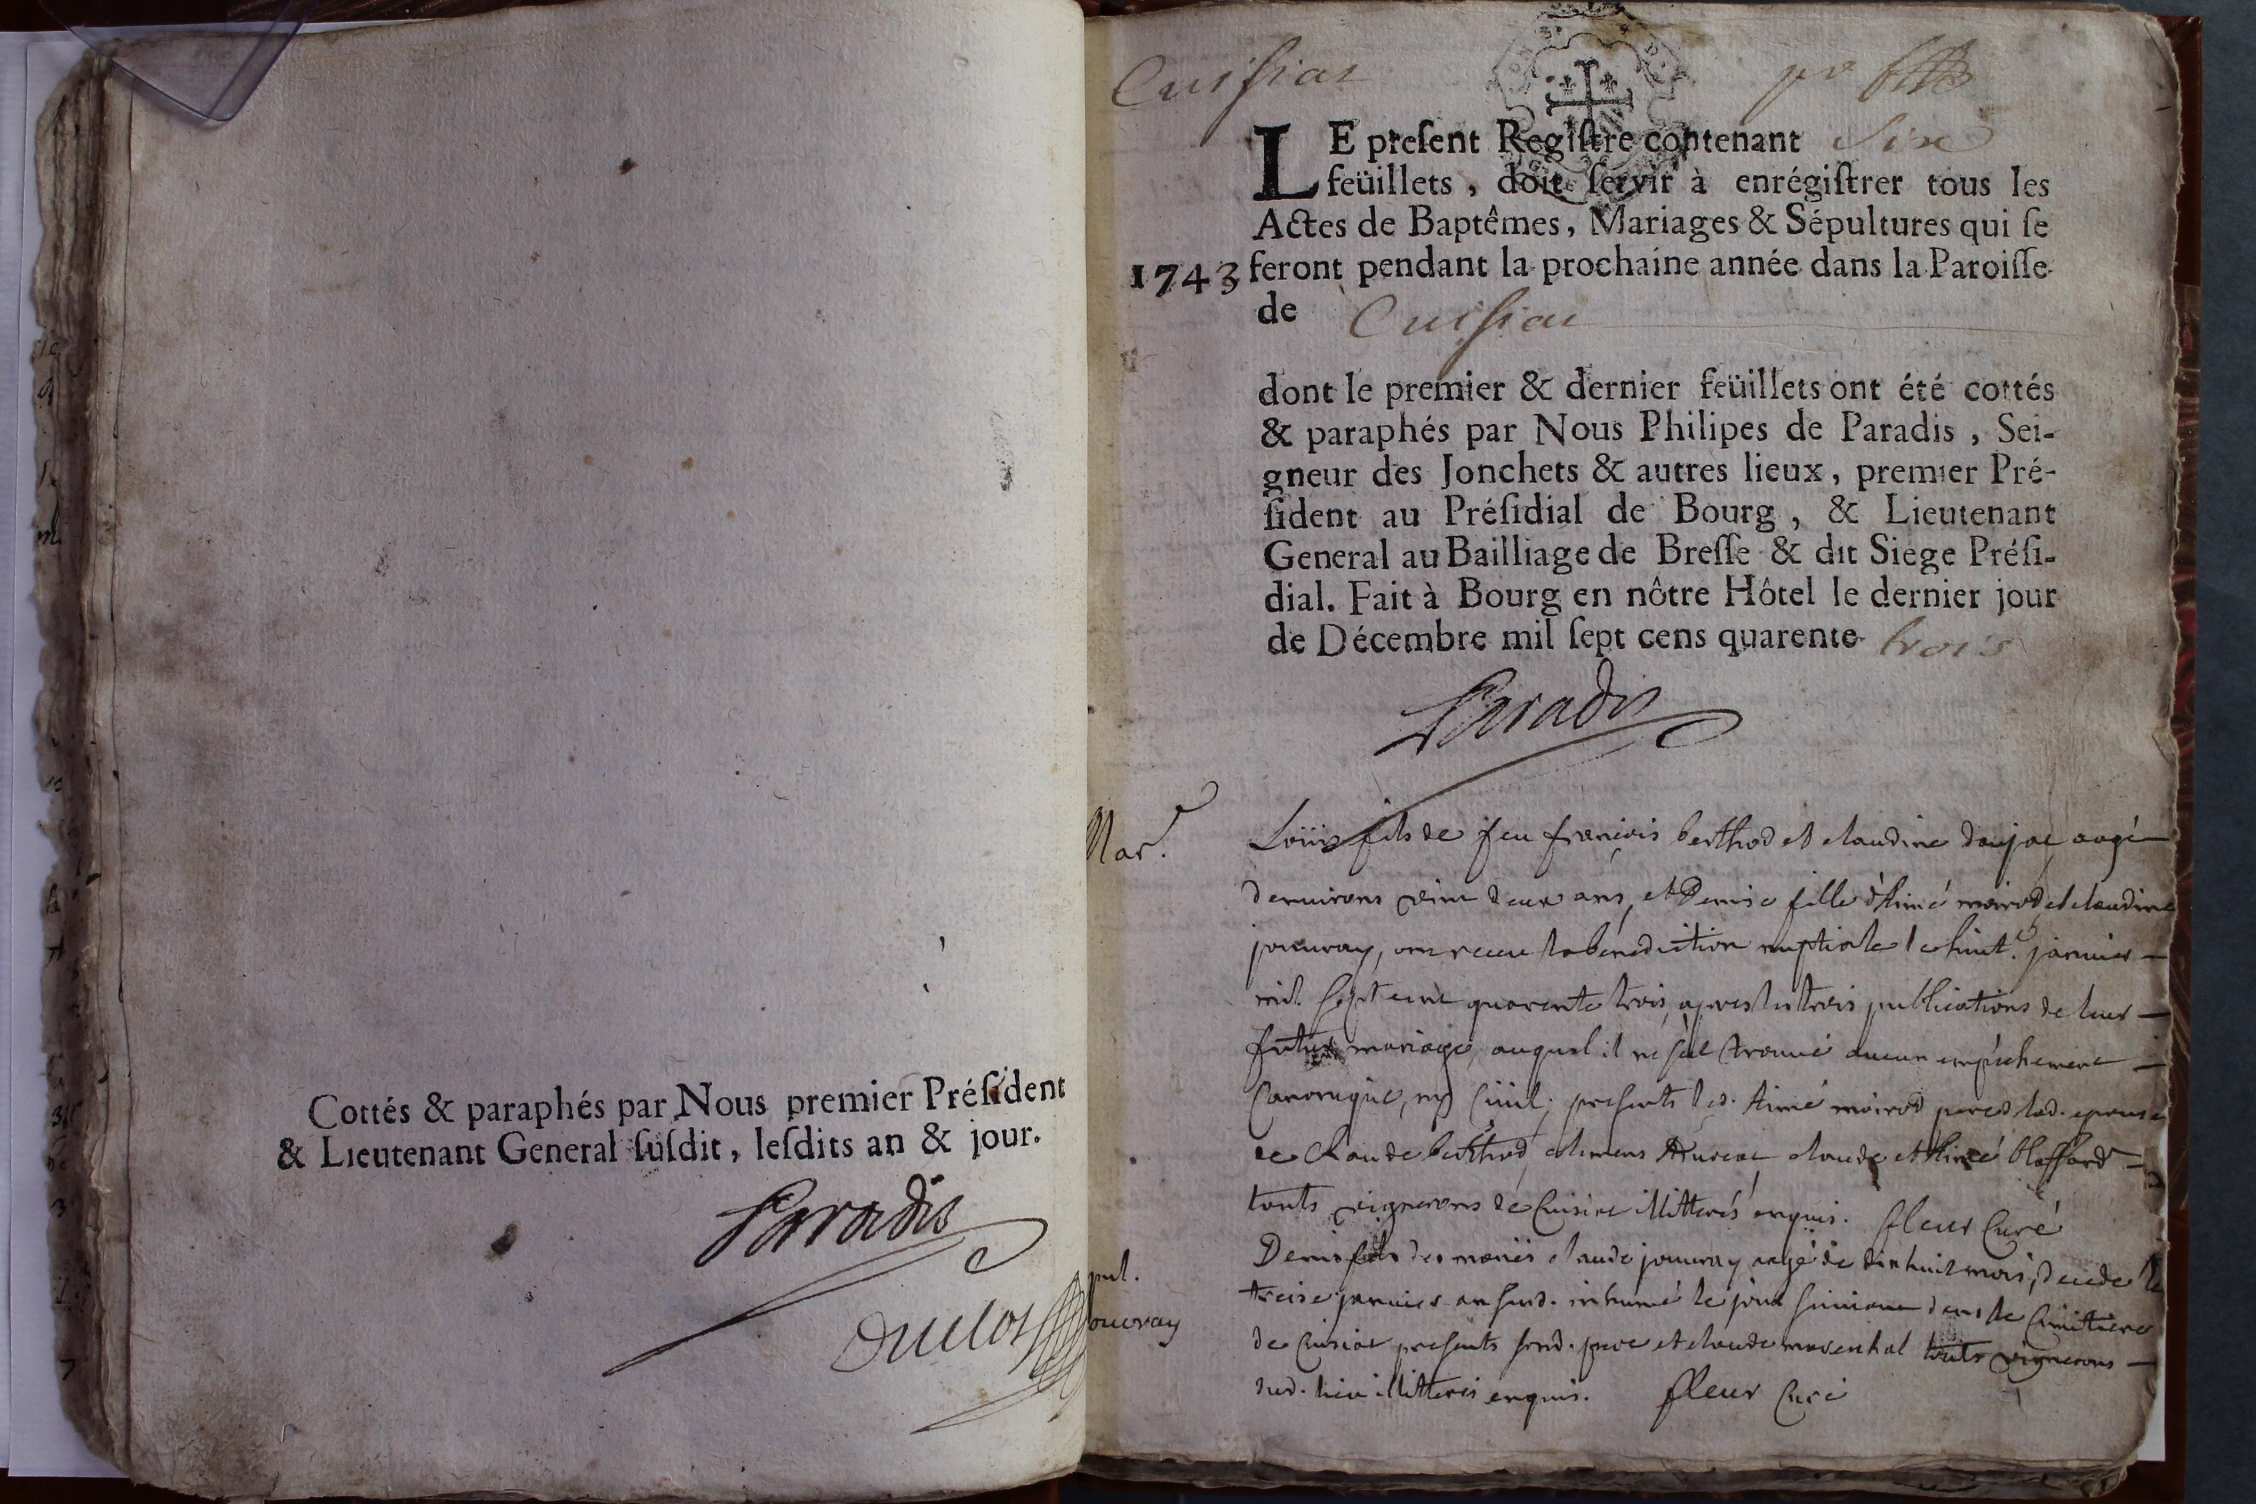 Cottés & paraphés par Nous premier Préſident
& Lieutenant General ſuſdit, leſdits an & jour.
Paradis
Duclos
Cuisiat
LE preſent Regiſtre contenant Six
feüillets, doit ſervir à enrégiſtrer tous les
Actes de Baptêmes, Mariages & Sépultures qui ſe
1743 feront pendant la prochaine année dans la Paroiſſe
de Cuisiat
dont le premier & dernier feüillets ont été cottés
& paraphés par Nous Philipes de Paradis, Sei-
gneur des Jonchets & autres lieux, premier Pré-
ſident au Préſidial de Bourg, & Lieutenant
General au Bailliage de Breſſe & dit Siege Préſi-
dial. Fait à Bourg en nôtre Hôtel le dernier jour
de Décembre mil ſept cens quarente trois
Paradis
Mar.e
Loüis fils de feu francois berthod et claudine aagé
denuirons vint deux ans, et Denise fille d'Aimé moirod et claudine
jouuray, ont receu la benediction nuptiale le huit.e januier
mil sept cent quarente trois, apres les trois publications de leur
futur mariage, auquel il ne s'est trouué aucun empechement
Canonique, ny Ciuil, presents led. Aimé moirod pere de lad. epouse
de Claude berthod, claude et Aimé blaffard
touts vignerons de Cuisiat illitterés enquis. fleur Curé
pul.
jouvray
Denis fils des mariés claude jouuray aagé de dix huit mois, decedé le
treise januier an susd. inhumé le jour suiuant dans le Cimittiere
de Cuisiat presents sond. pere et claude mareschal touts vignerons
dud. lieu illitterés enquis. fleur Curé